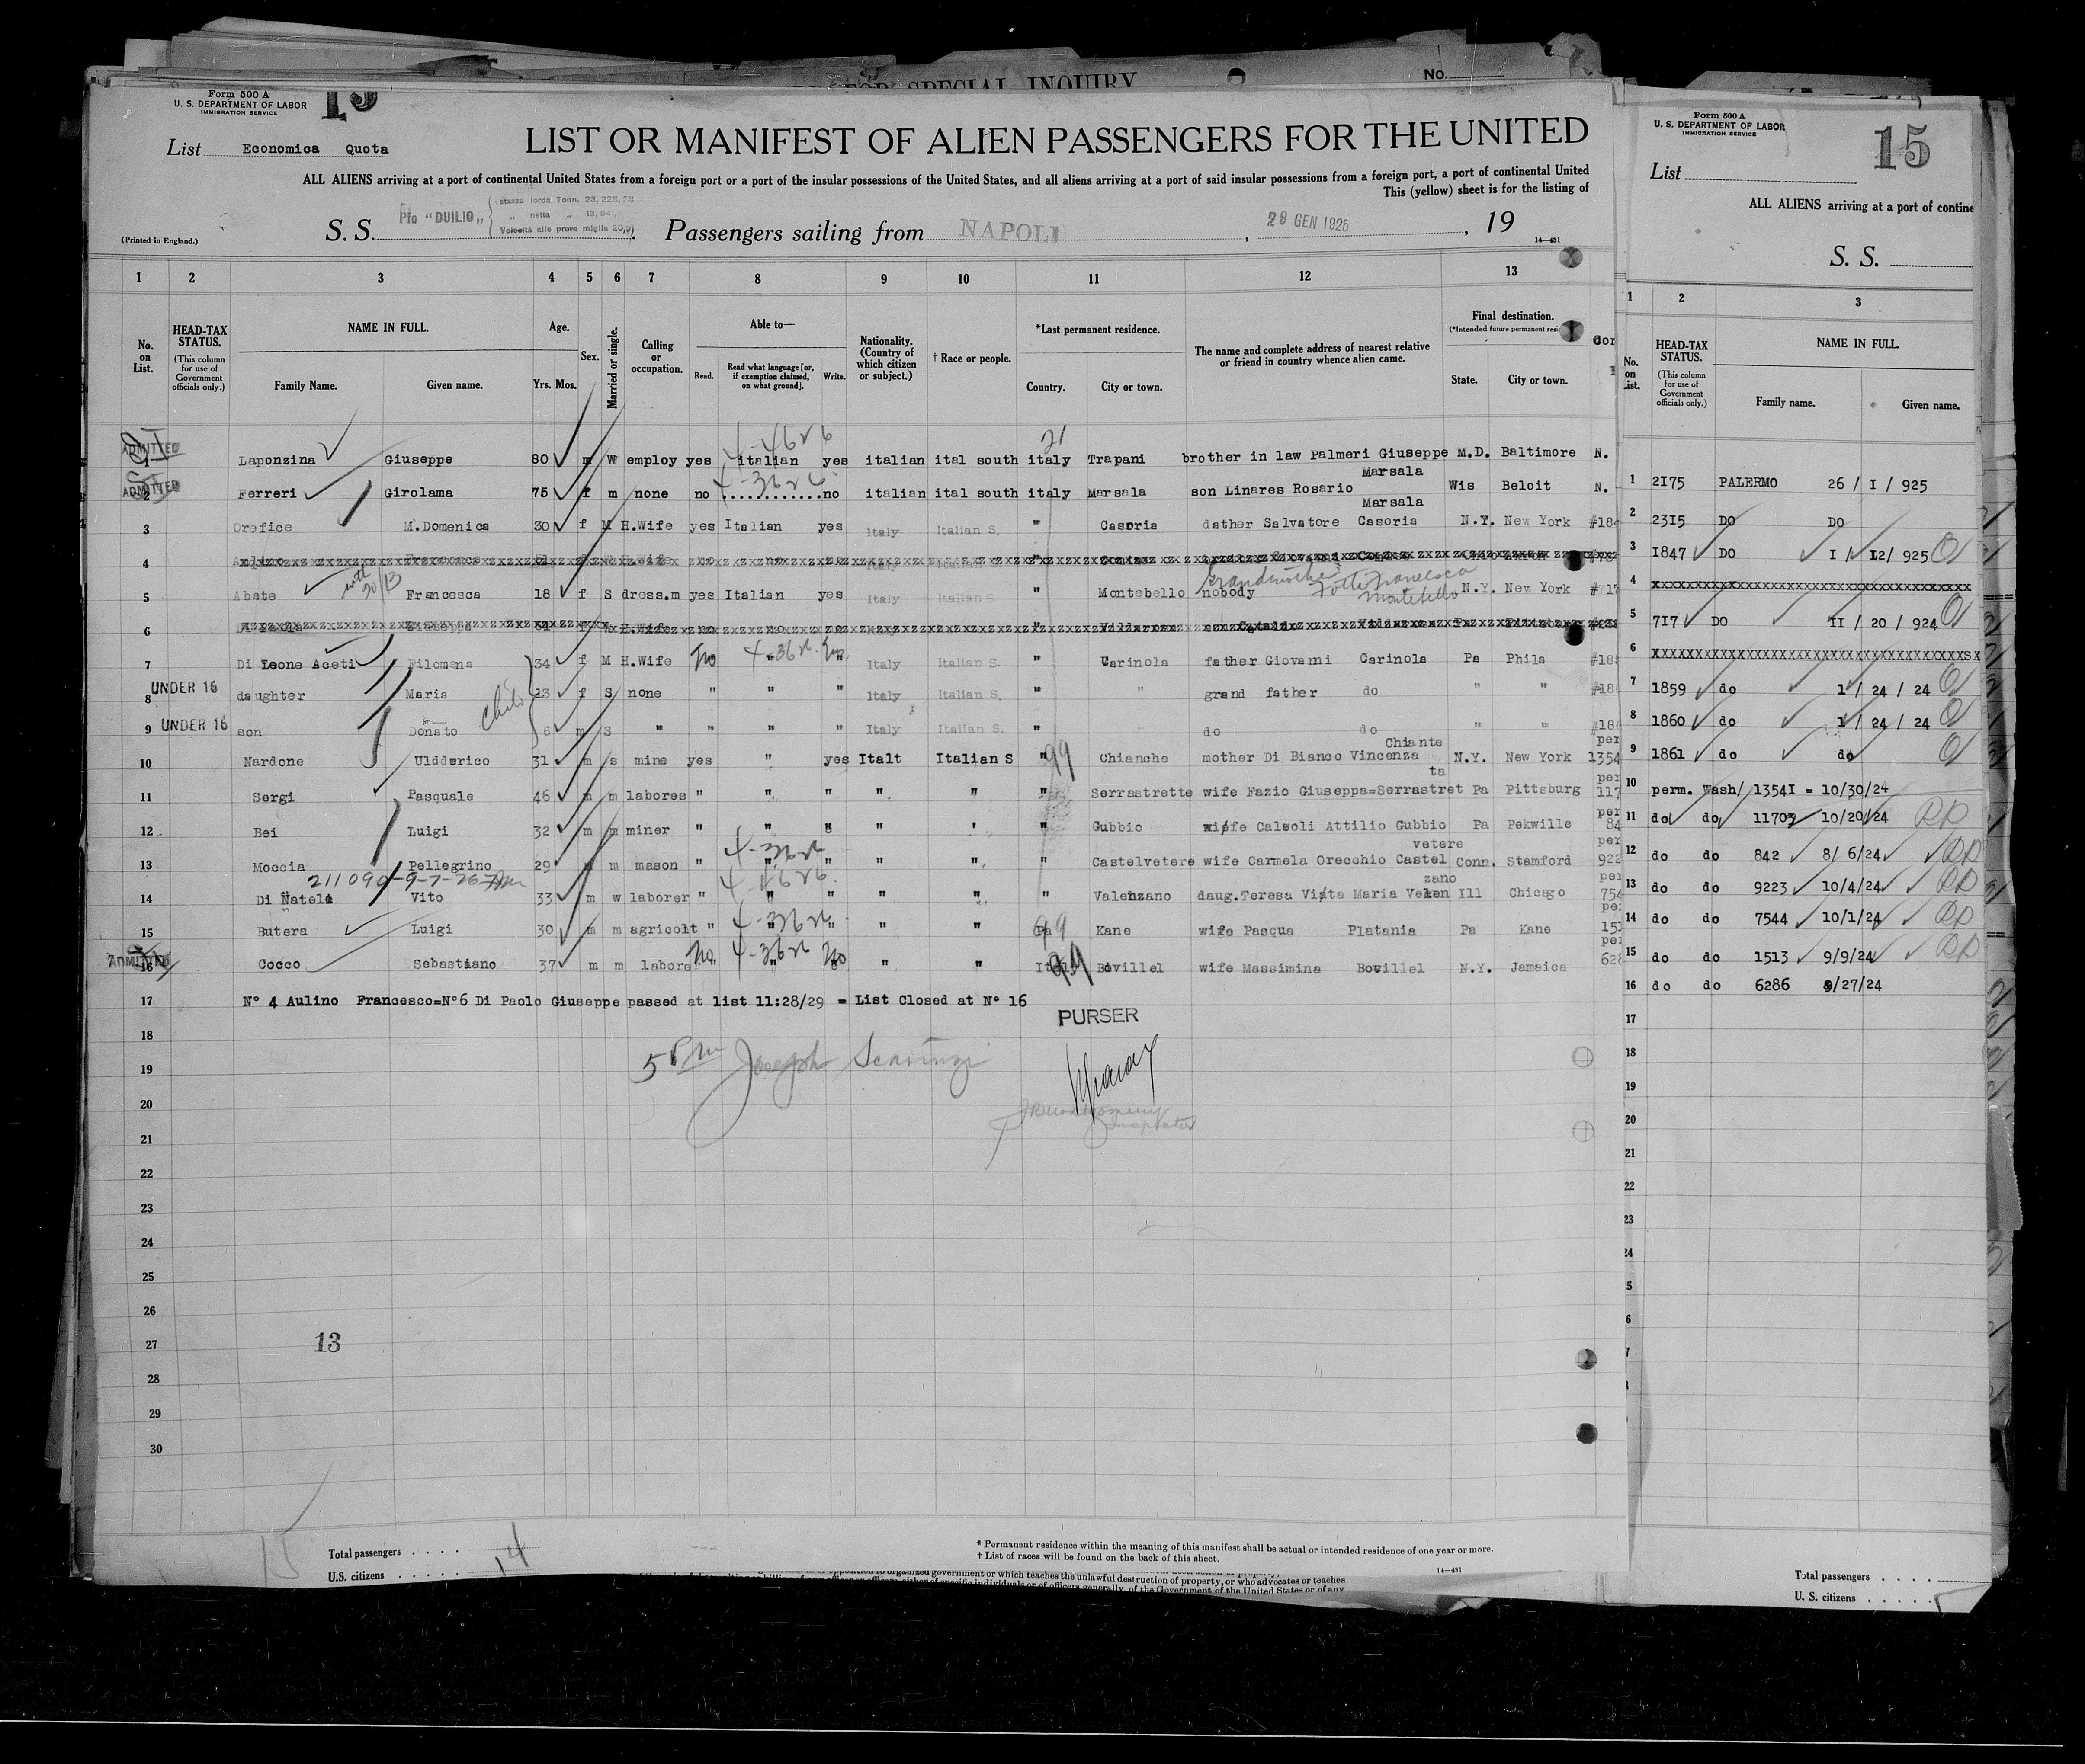 FOR SPECIAL INQUIRY
No.
Form 500 A
U. S. DEPARTMENT OF LABOR
IMMIGRATION SERVICE
15
List Economica Quota
LIST OR MANIFEST OF ALIEN PASSENGERS FOR THE UNITED
ALL ALIENS arriving at a port of continental United States from a foreign port or a port of the insular possessions of the United States, and all aliens arriving at a port of said insular possessions from a foreign port, a port of continental United
This (yellow) sheet is for the listing of
(Printed in England.)
S. S. Pfo "DUILIO"
stazza lorda Tonn. 23,228,
" netta " 13,941,
Velocità alle prove miglia 20,9
Passengers sailing from NAPOLI, 29 GEN 1925, 19
14—431
1 2 3 4 5 6 7 8 9 10 11 12 13
No. on List.
HEAD-TAX STATUS.
(This column for use of Government officials only.)
NAME IN FULL.
Family Name. Given name.
Age.
Yrs. Mos.
Sex.
Married or single.
Calling or occupation.
Able to—
Read. Read what language [or, if exemption claimed, on what ground]. Write.
Nationality. (Country of which citizen or subject.)
† Race or people.
*Last permanent residence.
Country. City or town.
The name and complete address of nearest relative or friend in country whence alien came.
Final destination.
(*Intended future permanent resi
State. City or town.
4-4626 21
ADMITTED 1 Laponzina Giuseppe 80 m W employ yes italian yes italian ital south italy Trapani brother in law Palmeri Giuseppe M.D. Baltimore N.
Marsala
4-3626
ADMITTED 2 Ferreri Girolama 75 f m none no ............no italian ital south italy Marsala son Linares Rosario Wis Beloit N.
Marsala
3 Orefice M.Domenica 30 f M H.Wife yes Italian yes Italy Italian S. " Casoria dather Salvatore Casoria N.Y. New York #184
4 H.Wife
Grandmother Francesca
Montebello
5 Abate Francesca 18 f S dress.m yes Italian yes Italy Italian S " Montebello nobody N.Y. New York #717
6 H.Wife
7 Di Leone Aceti Filomena 34 f M H.Wife No 4-3626 No Italy Italian S. " Carinola father Giovanni Carinola Pa Phila #185
UNDER 16 8 daughter Maria child 13 f S none " " " Italy Italian S. " " grand father do " " #186
UNDER 16 9 son Donato 6 m S " " " " Italy Italian S. " " do do " " #186
Chiante per
10 Nardone Uldderico 31 m s mine yes " yes Italt Italian S " 99 Chianche mother Di Bianco Vincenza N.Y. New York 1354
ta per
11 Sergi Pasquale 46 m m labores " " " " " " Serrastrette wife Fazio Giuseppa=Serrastret Pa Pittsburg 117
per
12 Bei Luigi 32 m m miner " " " " " Gubbio wife Calsoli Attilio Gubbio Pa Pekwille 84
vetere per
13 Moccia Pellegrino 29 m m mason " " " " " " Castelvetere wife Carmela Orecchio Castel Conn. Stamford 922
211090-9-7-26 4-4626
zano per
14 Di Natele Vito 33 m w laborer " " " " " " Valenzano daug.Teresa Vista Maria Velen Ill Chicago 754
4-3626
15 Butera Luigi 30 m m agricolt " " " " " Pa 99 Kane wife Pasqua Platania Pa Kane 151
per
ADMITTED 16 Cocco Sebastiano 37 m m labora No 4-3626 No " " Ital. 99 Bovillel wife Massimina Bovillel N.Y. Jamaica 628
17 N° 4 Aulino Francesco=N°6 Di Paolo Giuseppe passed at list 11:28/29 = List Closed at N° 16
PURSER
18
19 5 Pm Joseph
20
Inspector
21
22
23
24
25
26
27 13
28
29
30
15
Total passengers . . . . 14
U.S. citizens . . . . .
* Permanent residence within the meaning of this manifest shall be actual or intended residence of one year or more.
† List of races will be found on the back of this sheet.
14—431
Form 500 A
U. S. DEPARTMENT OF LABOR
IMMIGRATION SERVICE
15
List
ALL ALIENS arriving at a port of contine
S. S.
1 2 3
No. on List.
HEAD-TAX STATUS.
(This column for use of Government officials only.)
NAME IN FULL.
Family name. Given name.
1 2175 PALERMO 26 / I / 925
2 2315 DO DO
3 1847 DO I / 12/ 925
4 xxxxxxxxxxxxxxxxxxxxxxxxxxxxxxxxxxx
5 717 DO II / 20 / 924
6 xxxxxxxxxxxxxxxxxxxxxxxxxxxxxxxxxsx
7 1859 do 1 / 24 / 24
8 1860 do 1 / 24 / 24
9 1861 do do
10 perm. Wash/ 1354I = 10/30/24
11 do do 11703 10/20/24
12 do do 842 8/ 6/24
13 do do 9223 10/4/24
14 do do 7544 10/1/24
15 do do 1513 9/9/24
16 do do 6286 9/27/24
17
18
19
20
21
22
23
24
Total passengers . . . .
U. S. citizens . . . . .